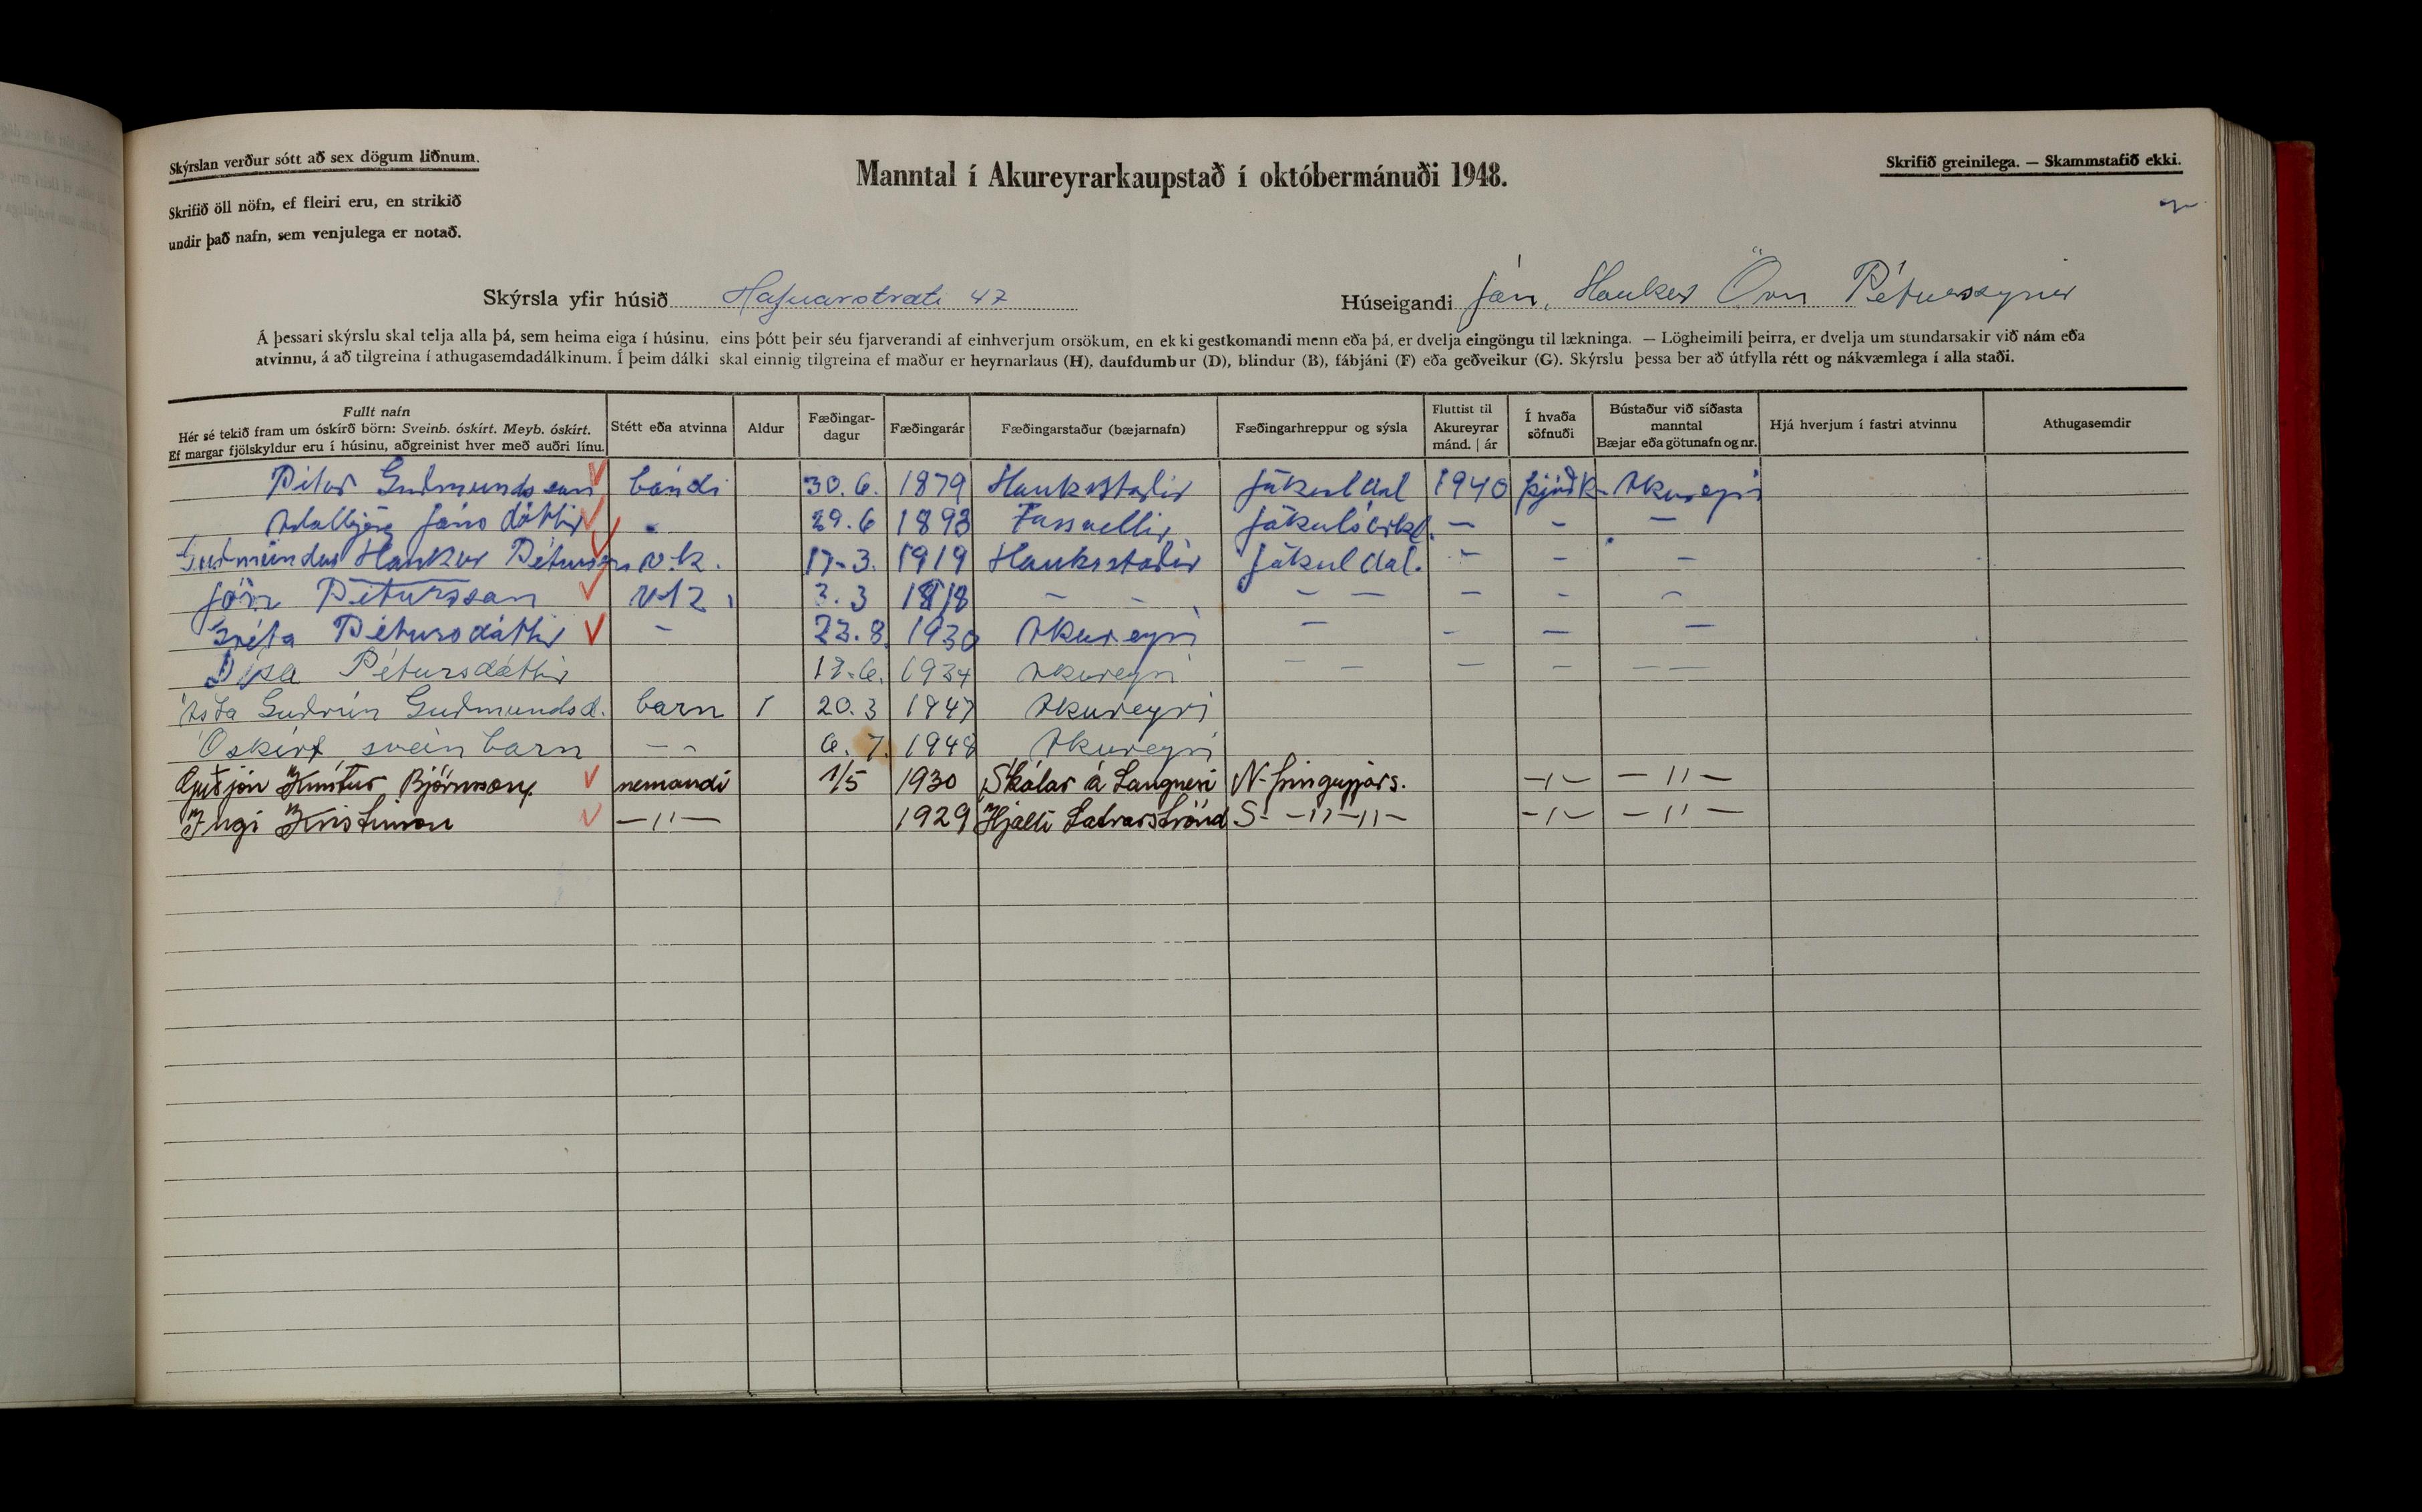 Skýrslan verður sótt að sex dögum liðnum.
Manntal í Akureyrarkaupstað í októbermánuði 1948.
Skrifið greinilega. — Skammstafið ekki.
Skrifið öll nöfn, ef fleiri eru, en strikið
undir það nafn, sem venjulega er notað.
Skýrsla yfir húsið Hafnarstræti 47 Húseigandi Jón, Haukur Örn Péturssynir
Á þessari skýrslu skal telja alla þá, sem heima eiga í húsinu, eins þótt þeir séu fjarverandi af einhverjum orsökum, en ekki gestkomandi menn eða þá, er dvelja eingöngu til lækninga. — Lögheimili þeirra, er dvelja um stundarsakir við nám eða
atvinnu, á að tilgreina í athugasemdadálkinum. Í þeim dálki skal einnig tilgreina ef maður er heyrnarlaus (H), daufdumbur (D), blindur (B), fábjáni (F) eða geðveikur (G). Skýrslu þessa ber að útfylla rétt og nákvæmlega í alla staði.
Fullt nafn
Hér sé tekið fram um óskírð börn: Sveinb. óskírt. Meyb. óskírt.
Ef margar fjölskyldur eru í húsinu, aðgreinist hver með auðri línu.
Stétt eða atvinna
Aldur
Fæðingar-
dagur
Fæðingarár
Fæðingarstaður (bæjarnafn)
Fæðingarhreppur og sýsla
Fluttist til
Akureyrar
mánd. | ár
Í hvaða
söfnuði
Bústaður við síðasta
manntal
Bæjar eða götunafn og nr.
Hjá hverjum í fastri atvinnu
Athugasemdir
Pétur Guðmundsson bóndi 30.6. 1879 Hauksstaðir Jökuldal 1940 þjóðk. Akureyri
Aðalbjörg Jónsdóttir 29.6 1893 Fossvellir — — —
Guðmundur Haukur Pétursson v.k. 17-3. 1919 Hauksstaðir Jökuldal. — — —
Jón Pétursson 3.3 1918 — — — — — — — —
Gréta Pétursdóttir — 23.8. 1930 Akureyri — — — —
Dísa Pétursdóttir 17.6. 1934 Akureyri — — — — — —
Ásta Guðrún Guðmundsd. barn 1 20.3 1947 Akureyri
Óskírt sveinbarn — — 6. 7. 1948 Akureyri
Guðjón Knútur Björnsson nemandi 1/5 1930 Skálar á Langnesi N-Þingeyjars. —"— —"—
Ingi Kristinsson —"— 1929 Hjalli Látraströnd S- —"—"— —"— —"—